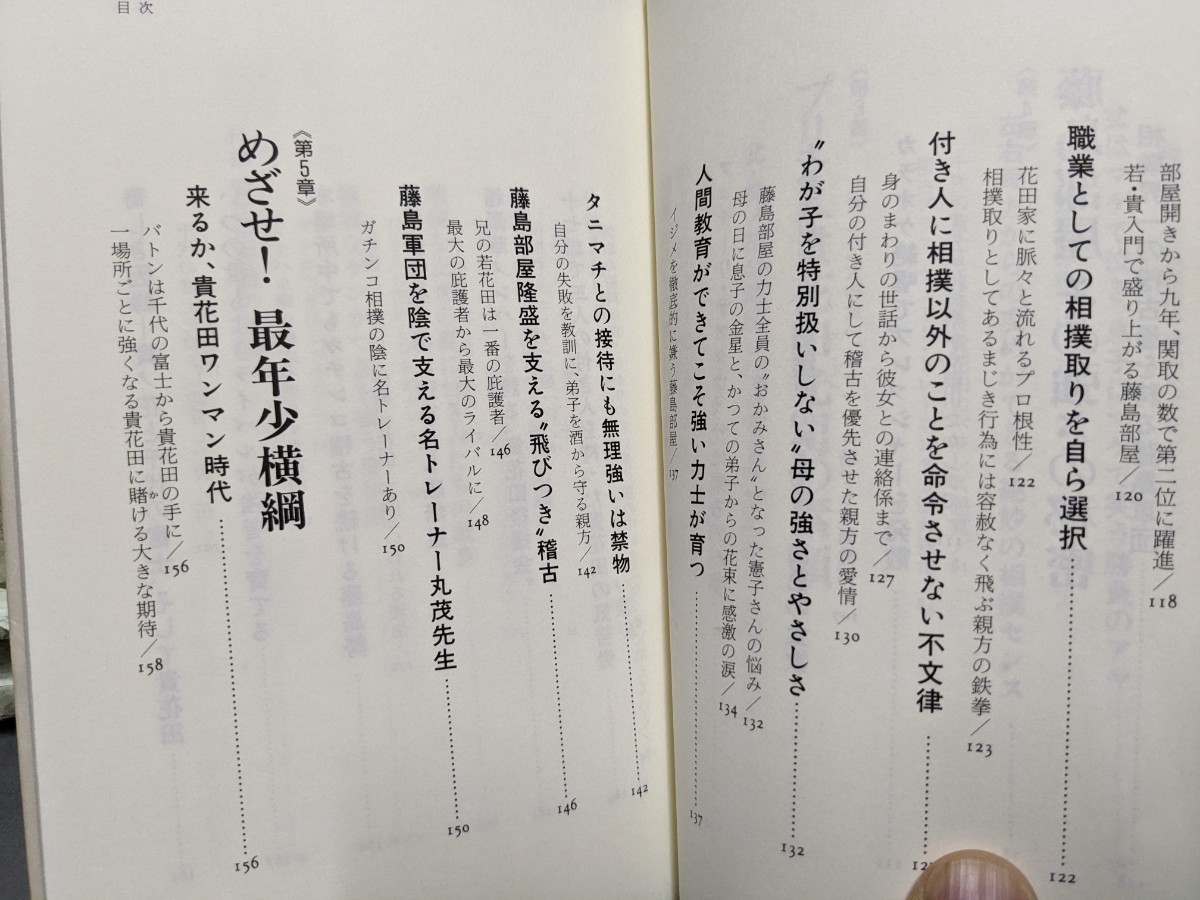 部屋開きから九年、関取の数で第二位に躍進／118
若・貴入門で盛り上がる藤島部屋／120
職業としての相撲取りを自ら選択……122
花田家に脈々と流れるプロ根性／122
相撲取りとしてあるまじき行為には容赦なく飛ぶ親方の鉄拳／123
付き人に相撲以外のことを命令させない不文律……12
身のまわりの世話から彼女との連絡係まで／127
自分の付き人にして稽古を優先させた親方の愛情／130
〝わが子を特別扱いしない〟母の強さとやさしさ……132
藤島部屋の力士全員の〝おかみさん〟となった憲子さんの悩み／132
母の日に息子の金星と、かつての弟子からの花束に感激の涙／134
人間教育ができてこそ強い力士が育つ……137
イジメを徹底的に嫌う藤島部屋／137
目次
タニマチとの接待にも無理強いは禁物……142
自分の失敗を教訓に、弟子を酒から守る親方／142
藤島部屋隆盛を支える〝飛びつき〟稽古……146
兄の若花田は一番の庇護者／146
最大の庇護者から最大のライバルに／148
藤島軍団を陰で支える名トレーナー丸茂先生……150
ガチンコ相撲の陰に名トレーナーあり／150
《第5章》
めざせ！最年少横綱
来るか、貴花田ワンマン時代……156
バトンは千代の富士から貴花田の手に／156
一場所ごとに強くなる貴花田に賭ける大きな期待／158
か